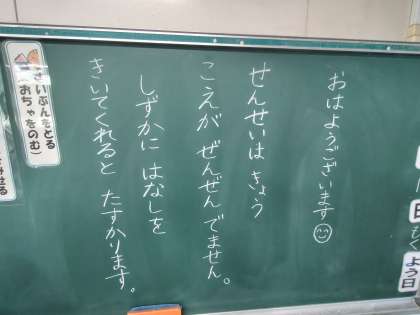 おはようございます
せんせいは きょう
こえが ぜんぜん でません。
しずかに はなしを
きいてくれると たすかります。
いぶんをとる
(おちゃをのむ)
よう日